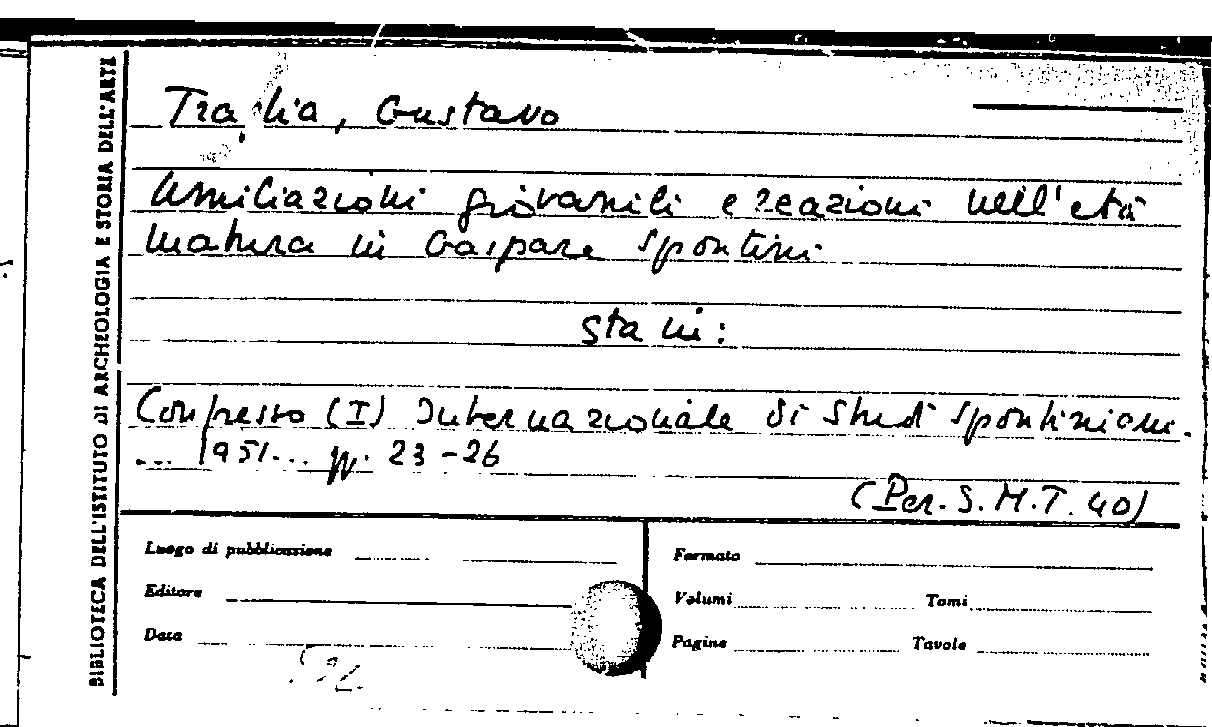 BIBLIOTECA DELL'ISTITUTO di ARCHEOLOGIA E STORIA DELL'ARTE
Traglia, Gustavo
Umiliazioni giovanili e reazioni nell'età
matura in Gaspare Spontini
sta in:
Congresso (I) Internazionale di Studi Spontiniani.
... 1951... pp. 23-26
(Per. S.M.T. 40)
Luogo di pubblicazione
Editore
Data
Formato
Volumi Tomi
Pagine Tavole